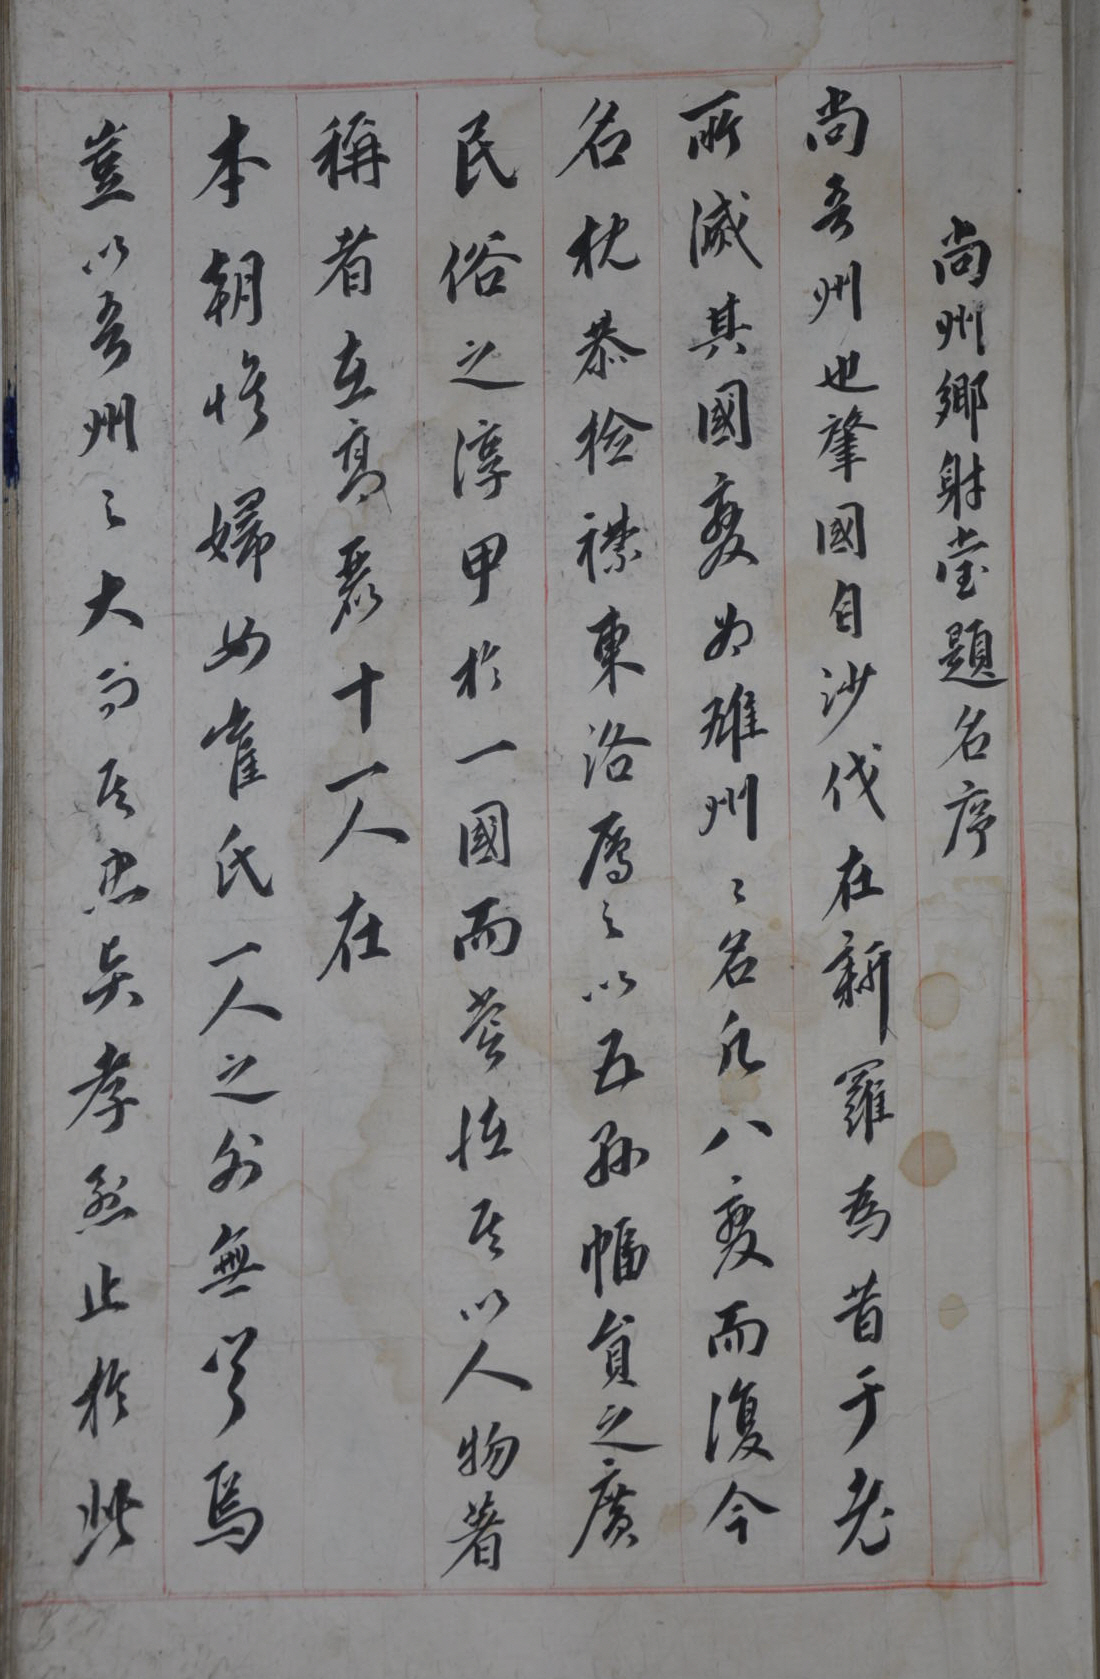 尚州鄉射堂題名序
尚吾州也肇國自沙伐在新羅爲昔于老
所滅其國變爲雄州〻名凡八變而復今
名枕恭檢襟東洛鴈之以五孫幅員之廣
民俗之淳甲於一國而其以人物著
稱者在高麗十一人在
本朝惟婦女崔氏一人之外無聞焉
豈以吾州之大而其忠與孝烈止於此